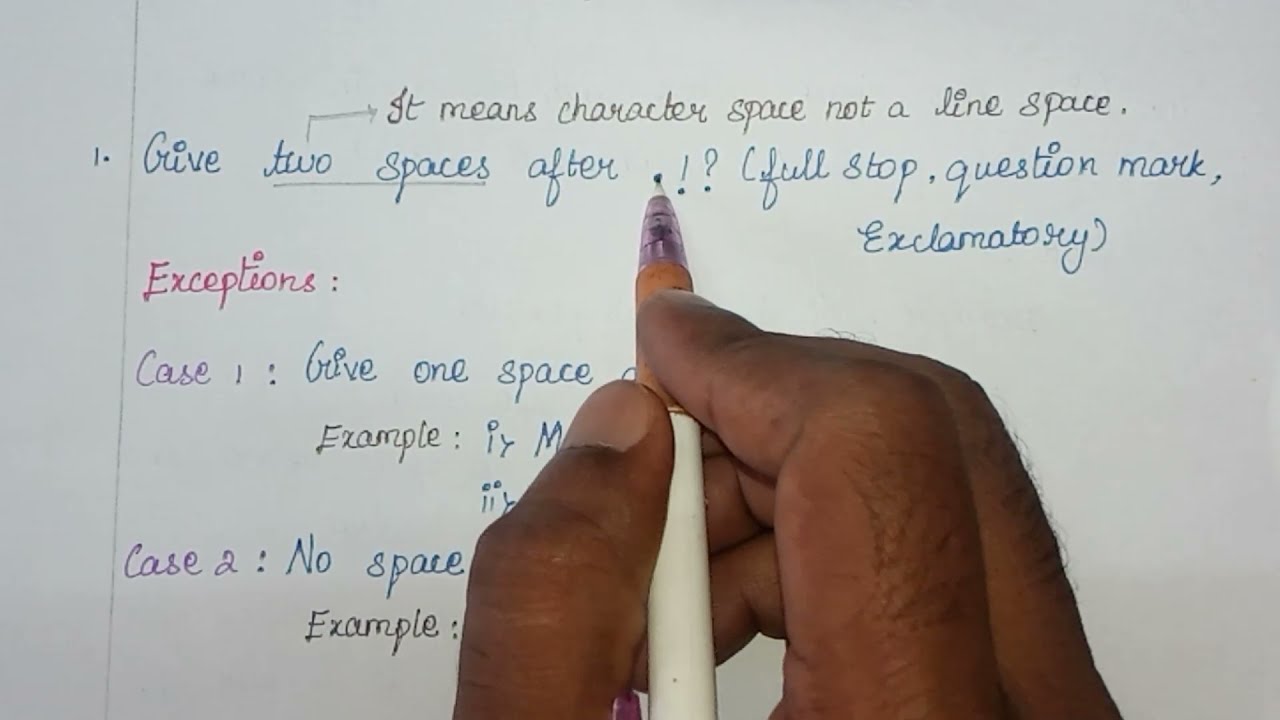 It means character space not a line space.
1. Give two spaces after . ! ? (full stop, question mark,
Exclamatory)
Exceptions :
Case 1 : Give one space
Example : i)
ii)
Case 2 : No space
Example :